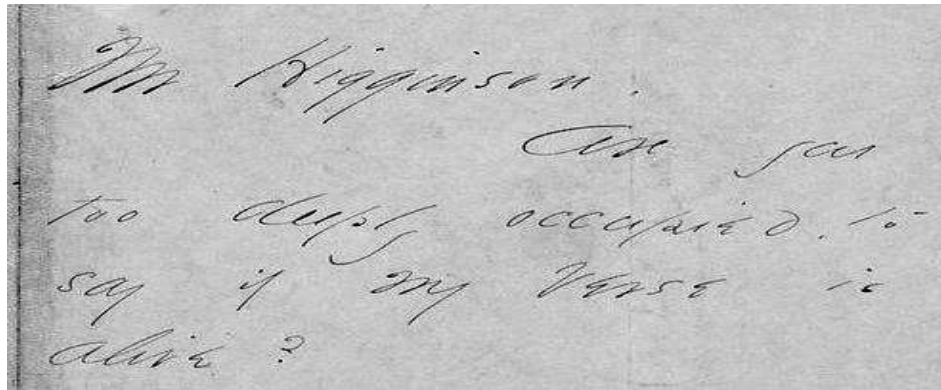 Mr Higginson.
Are you
too deeply occupied. to
say if my Verse is
alive?